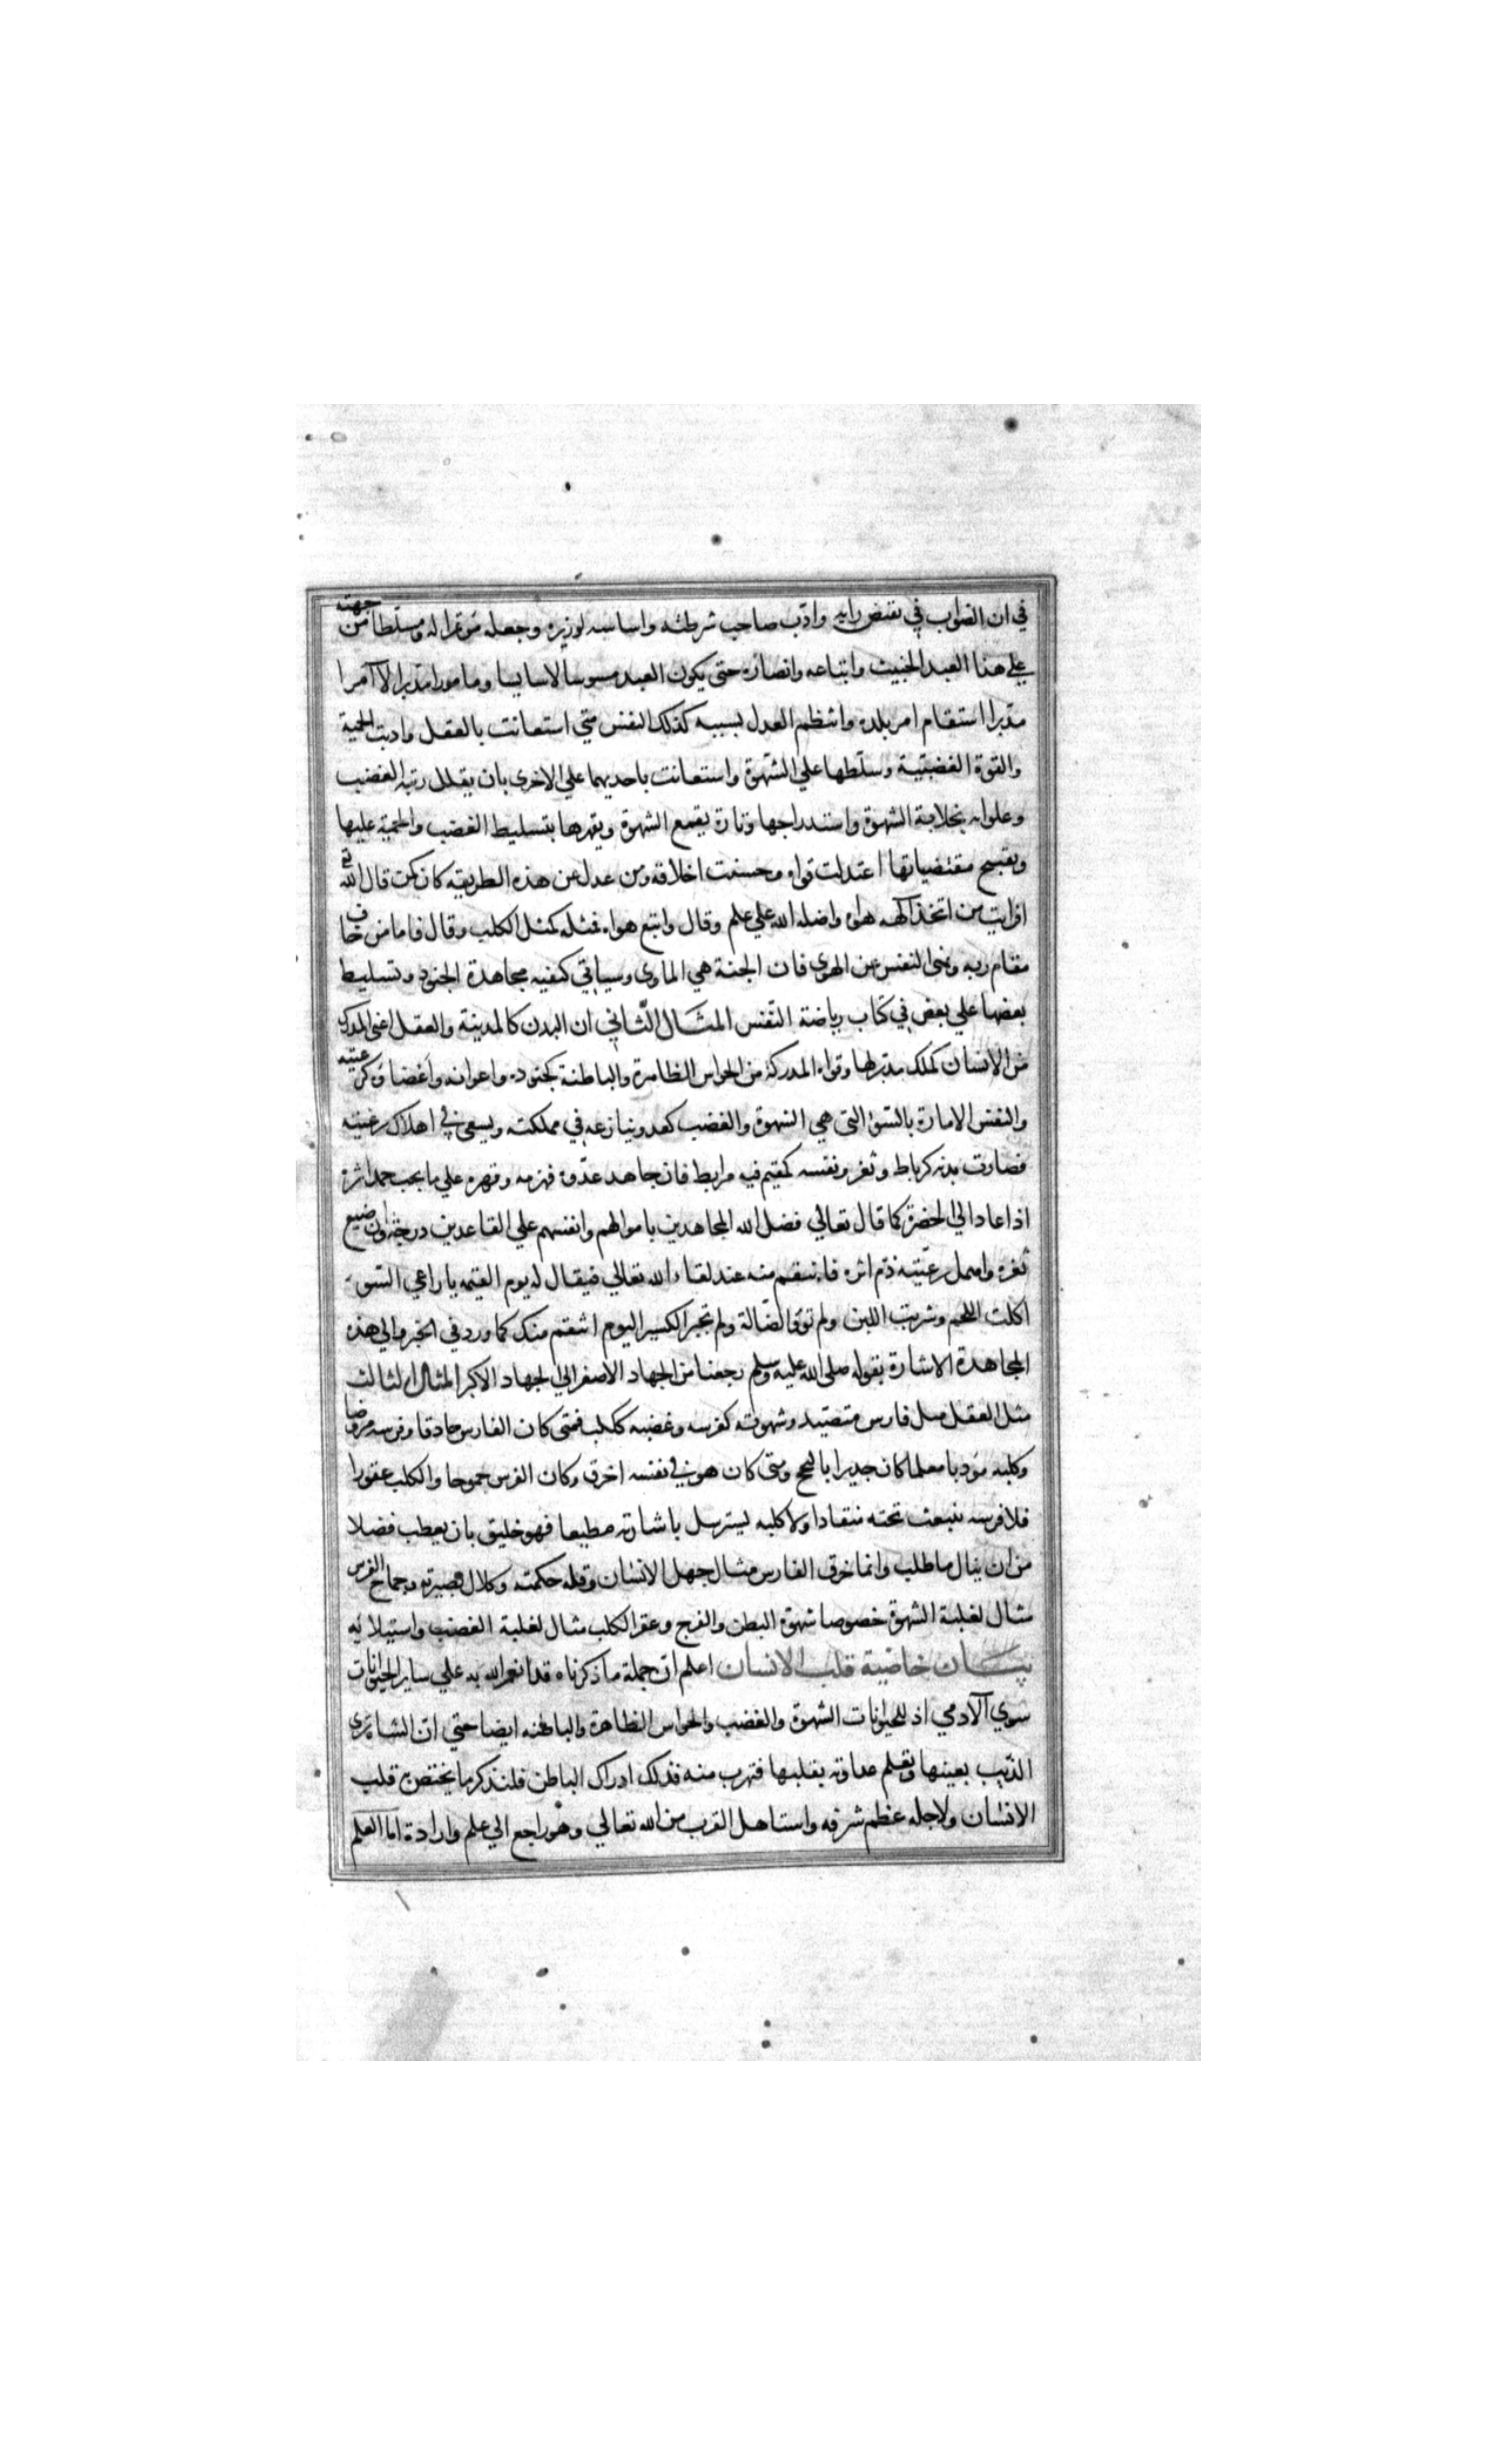 في ان الصواب في نقيض رايه وادب صاحب شرطته واساسه لوزيره وجعله مؤتمرا له ومسلطا من جهته
علي هذا العبد الخبيث واتباعه وانصاره حتى يكون العبد مسوسا لا سايسا ومامورا مدبرا لا آمرا
مدبرا استقام امر بلده وانتظم العدل بسببه كذلك النفس متي استعانت بالعقل وادبت الحمية
والقوة الغضبية وسلطها علي الشهوة واستعانت باحديهما علي الاخرى بان يقلل رتبه الغضب
وعلوايه بخلابة الشهوة واستدراجها وتارة يقمع الشهوة ويقهرها بتسليط الغضب والحمية عليها
وبقبح مقتضياتها اعتدلت قواه وحسنت اخلاقه ومن عدل عن هذه الطريقه كان كمن قال الله تع
افرايت من اتخذ الهه هواه واضله الله علي علم وقال واتبع هواه فمثله كمثل الكلب وقال فاما من خاف
مقام ربه ونهى النفس عن الهوي فان الجنة هي الماوى وسياتي كيفيه مجاهدة الجنود وتسليط
بعضها علي بعض في كتاب رياضة النفس المثال الثاني ان البدن كالمدينة والعقل اعني المدرك
من الانسان كملك مدبرلها وقواه المدركة من الحواس الظاهرة والباطنة كجنوده واعوانه وأعضاؤه كرعيته
والنفس الامارة بالسوء التي هي الشهوة والغضب كعدو ينازعه في مملكته ويسعى في اهلاك رعيته
فصارت بدنه كرباط وثغر ونفسه كمقيم فيه مرابط فان جاهد عدوه فهزمه وقهره علي ما يحب حمد اثرة
اذا عاد الي الحضرة كما قال تعالي فضل الله المجاهدين باموالهم وانفسهم علي القاعدين درجة وان ضيع
ثغره واهمل رعيته ذم اثره فانتقم منه عند لقاء الله تعالي فيقال له يوم القيمه يا راعي السوء
اكلت اللحم وشربت اللبن ولم تؤو الضالة ولم تجبر الكسير اليوم انتقم منك كما ورد في الخبر والي هذه
المجاهدة الاشارة بقوله صلى الله عليه وسلم رجعنا من الجهاد الاصغر الي الجهاد الاكبر المثال الثالث
مثل العقل مثل فارس متصيد وشهوته كفرسه وغضبه ككلبه فمتى كان الفارس حادقا وفرسه مروضا
وكلبه مؤدبا معلما كان جديرا بالنجح ومتى كان هو في نفسه اخرق وكان الفرس جموحا والكلب عقورا
فلا فرسه ينبعث تحته منقادا ولا كلبه يسترسل باشارته مطيعا فهو خليق بان يعطب فضلا
من ان ينال ما طلب وانما خرق الفارس مثال جهل الانسان وقله حكمته وكلال بصيرته وجماح الفرس
مثال لغلبة الشهوة خصوصا شهوة البطن والفرج وعقر الكلب مثال لغلبة الغضب واستيلائه
بيان خاضية قلب الانسان اعلم ان جملة ما ذكرناه قد انعم الله به علي ساير الحيوانات
سوي الآدمي اذ للحيوانات الشهوة والغضب والحواس الظاهرة والباطنه ايضا حتي ان الشاة تري
الذيب بعينها وتعلم عداوته بقلبها فتهرب منه فذلك ادراك الباطن فلنذكر ما يختص به قلب
الانسان ولاجله عظم شرفه واستاهل القرب من الله تعالي وهو راجع الي علم وارادة اما العلم